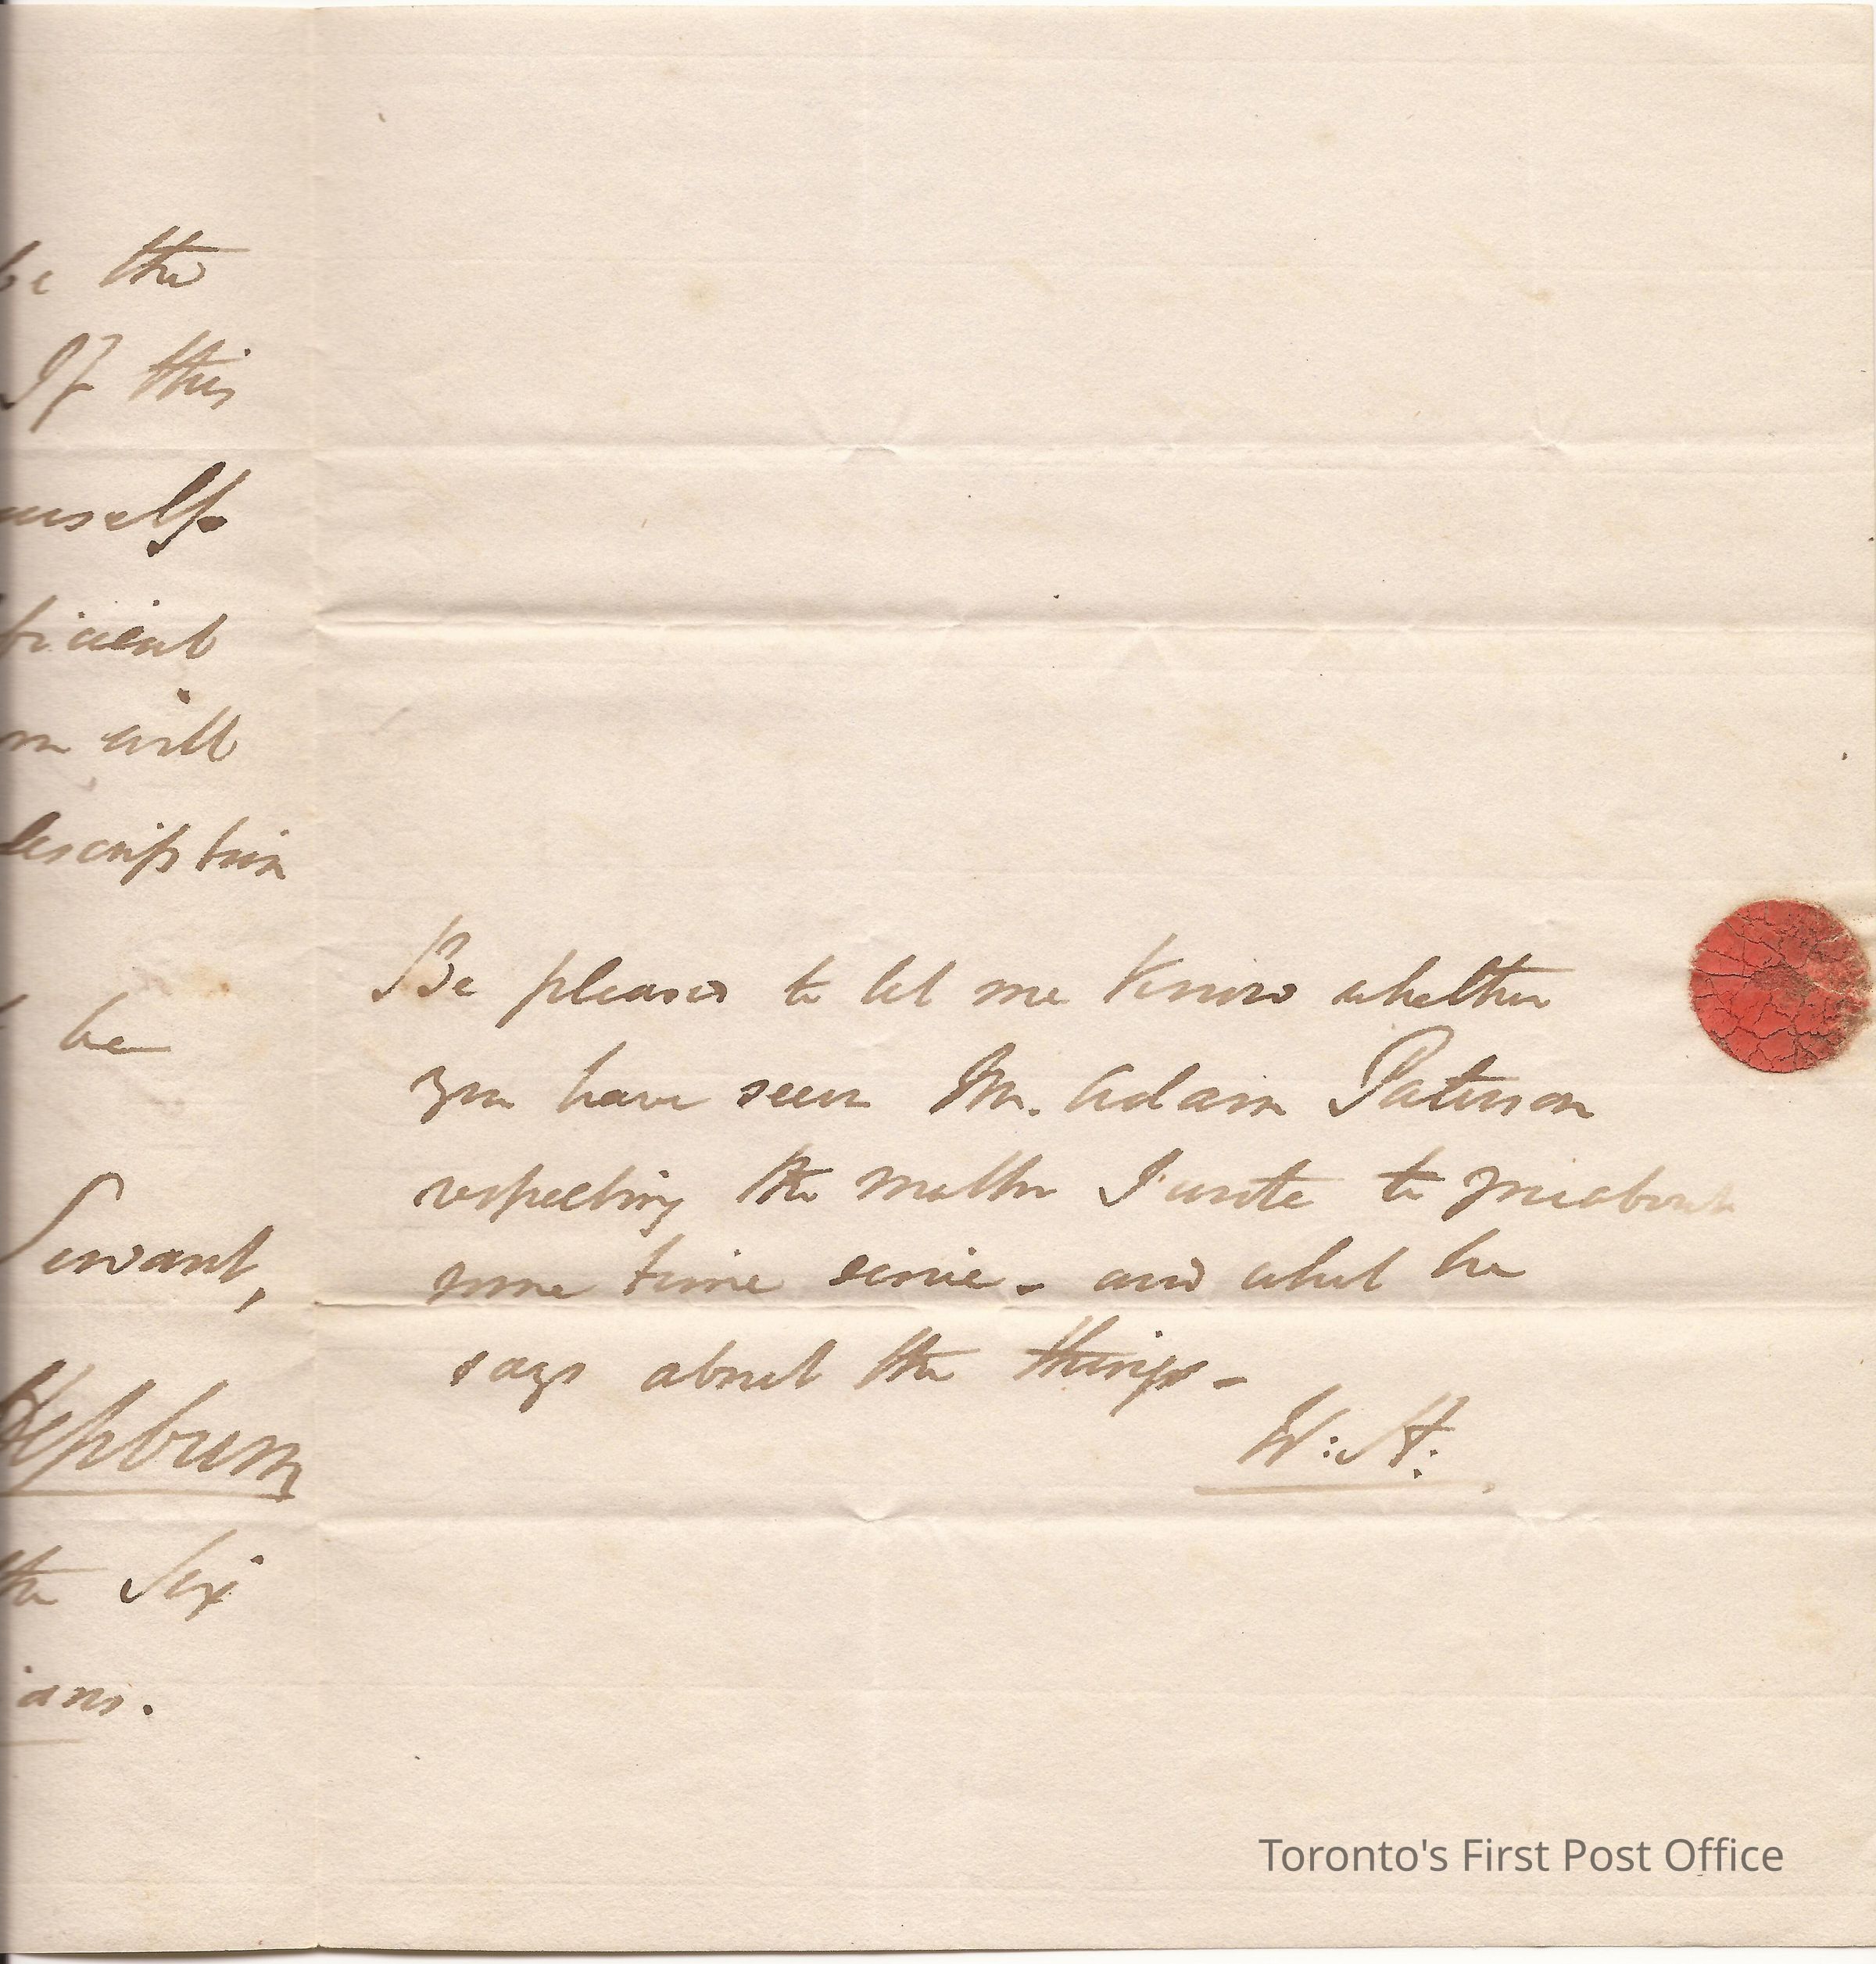 be the
If this
urself
ficient
m will
description
be
Servant,
Hepburn
the Six
ians.
Be pleased to let me know whether
you have seen Mr. Adam Paterson
respecting the matter I wrote to you about
some time since - and what he
says about the things -
W: H:
Toronto's First Post Office